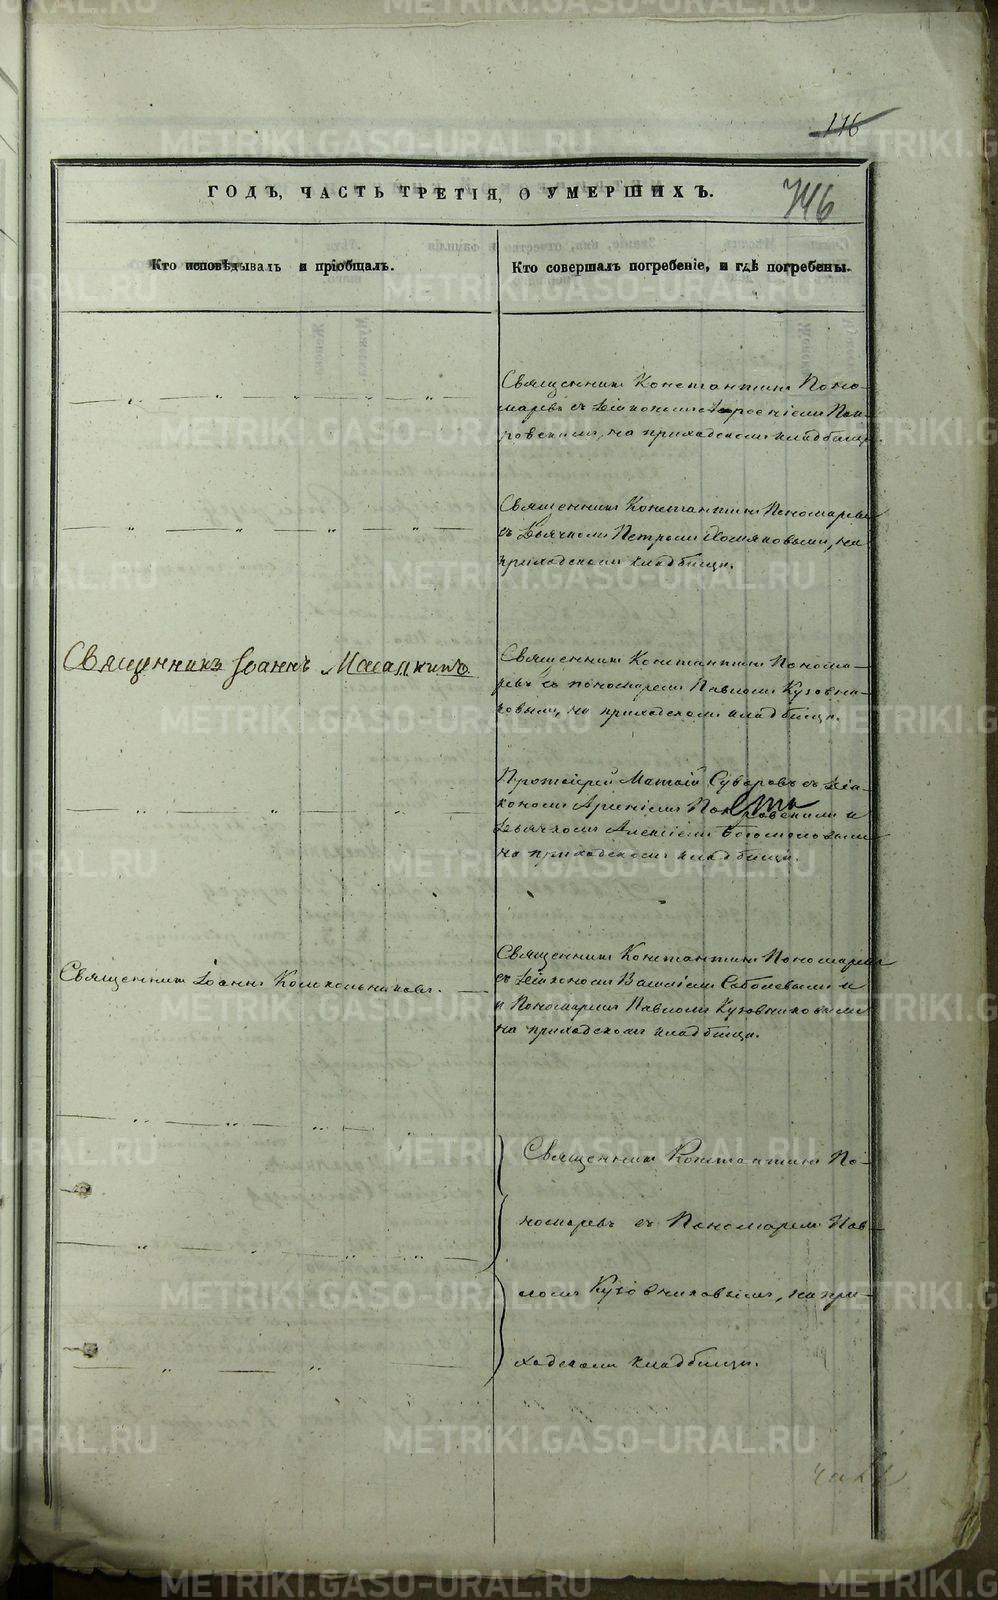 116
746
ГОДЪ, ЧАСТЬ ТРЕТІЯ, О УМЕРШИХЪ.
Кто исповѣдывалъ и пріобщалъ.
Кто совершалъ погребеніе, и гдѣ погребены.
Священникъ Константинъ Поно-
маревъ съ Діакономъ Арсеніемъ Пок-
ровскимъ, на приходскомъ кладбищѣ.
Священникъ Константинъ Пономаревъ
съ Дьячкомъ Петромъ Хомяковымъ, на
приходскомъ кладбищѣ.
Священникъ Іоаннъ
Священникъ Константинъ Понома-
ревъ съ пономаремъ Павломъ Кузовни-
ковымъ, на приходскомъ кладбищѣ.
Протоіерей Матѳій Суворовъ съ Діа-
кономъ Арсеніемъ Покровскимъ и
Дьячкомъ Алексѣемъ Богомоловымъ
на приходскомъ кладбищѣ.
Священникъ Іоаннъ Колокольниковъ.
Священникъ Константинъ Пономаревъ
съ Діакономъ Василіемъ Соболевымъ и
и Пономаремъ Павломъ Кузовниковымъ
на приходскомъ кладбищѣ.
Священникъ Константинъ По-
номаревъ съ Пономаремъ Пав-
ломъ Кузовниковымъ, на при-
ходскомъ кладбищѣ.
METRIKI.GASO-URAL.RU